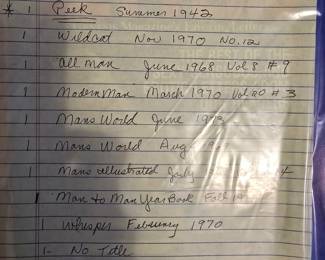 * 1 Peek Summer 1942
1 Wildcat Nov 1970 No. 12
1 All Man June 1968 Vol 8 # 9
1 Modern Man March 1970 Vol 20 # 3
1 Mans World June
1 Mans World Aug
1 Mans illustrated July 4
1 Man to Man Year Book Fall
1 Whisper February 1970
1- No Title